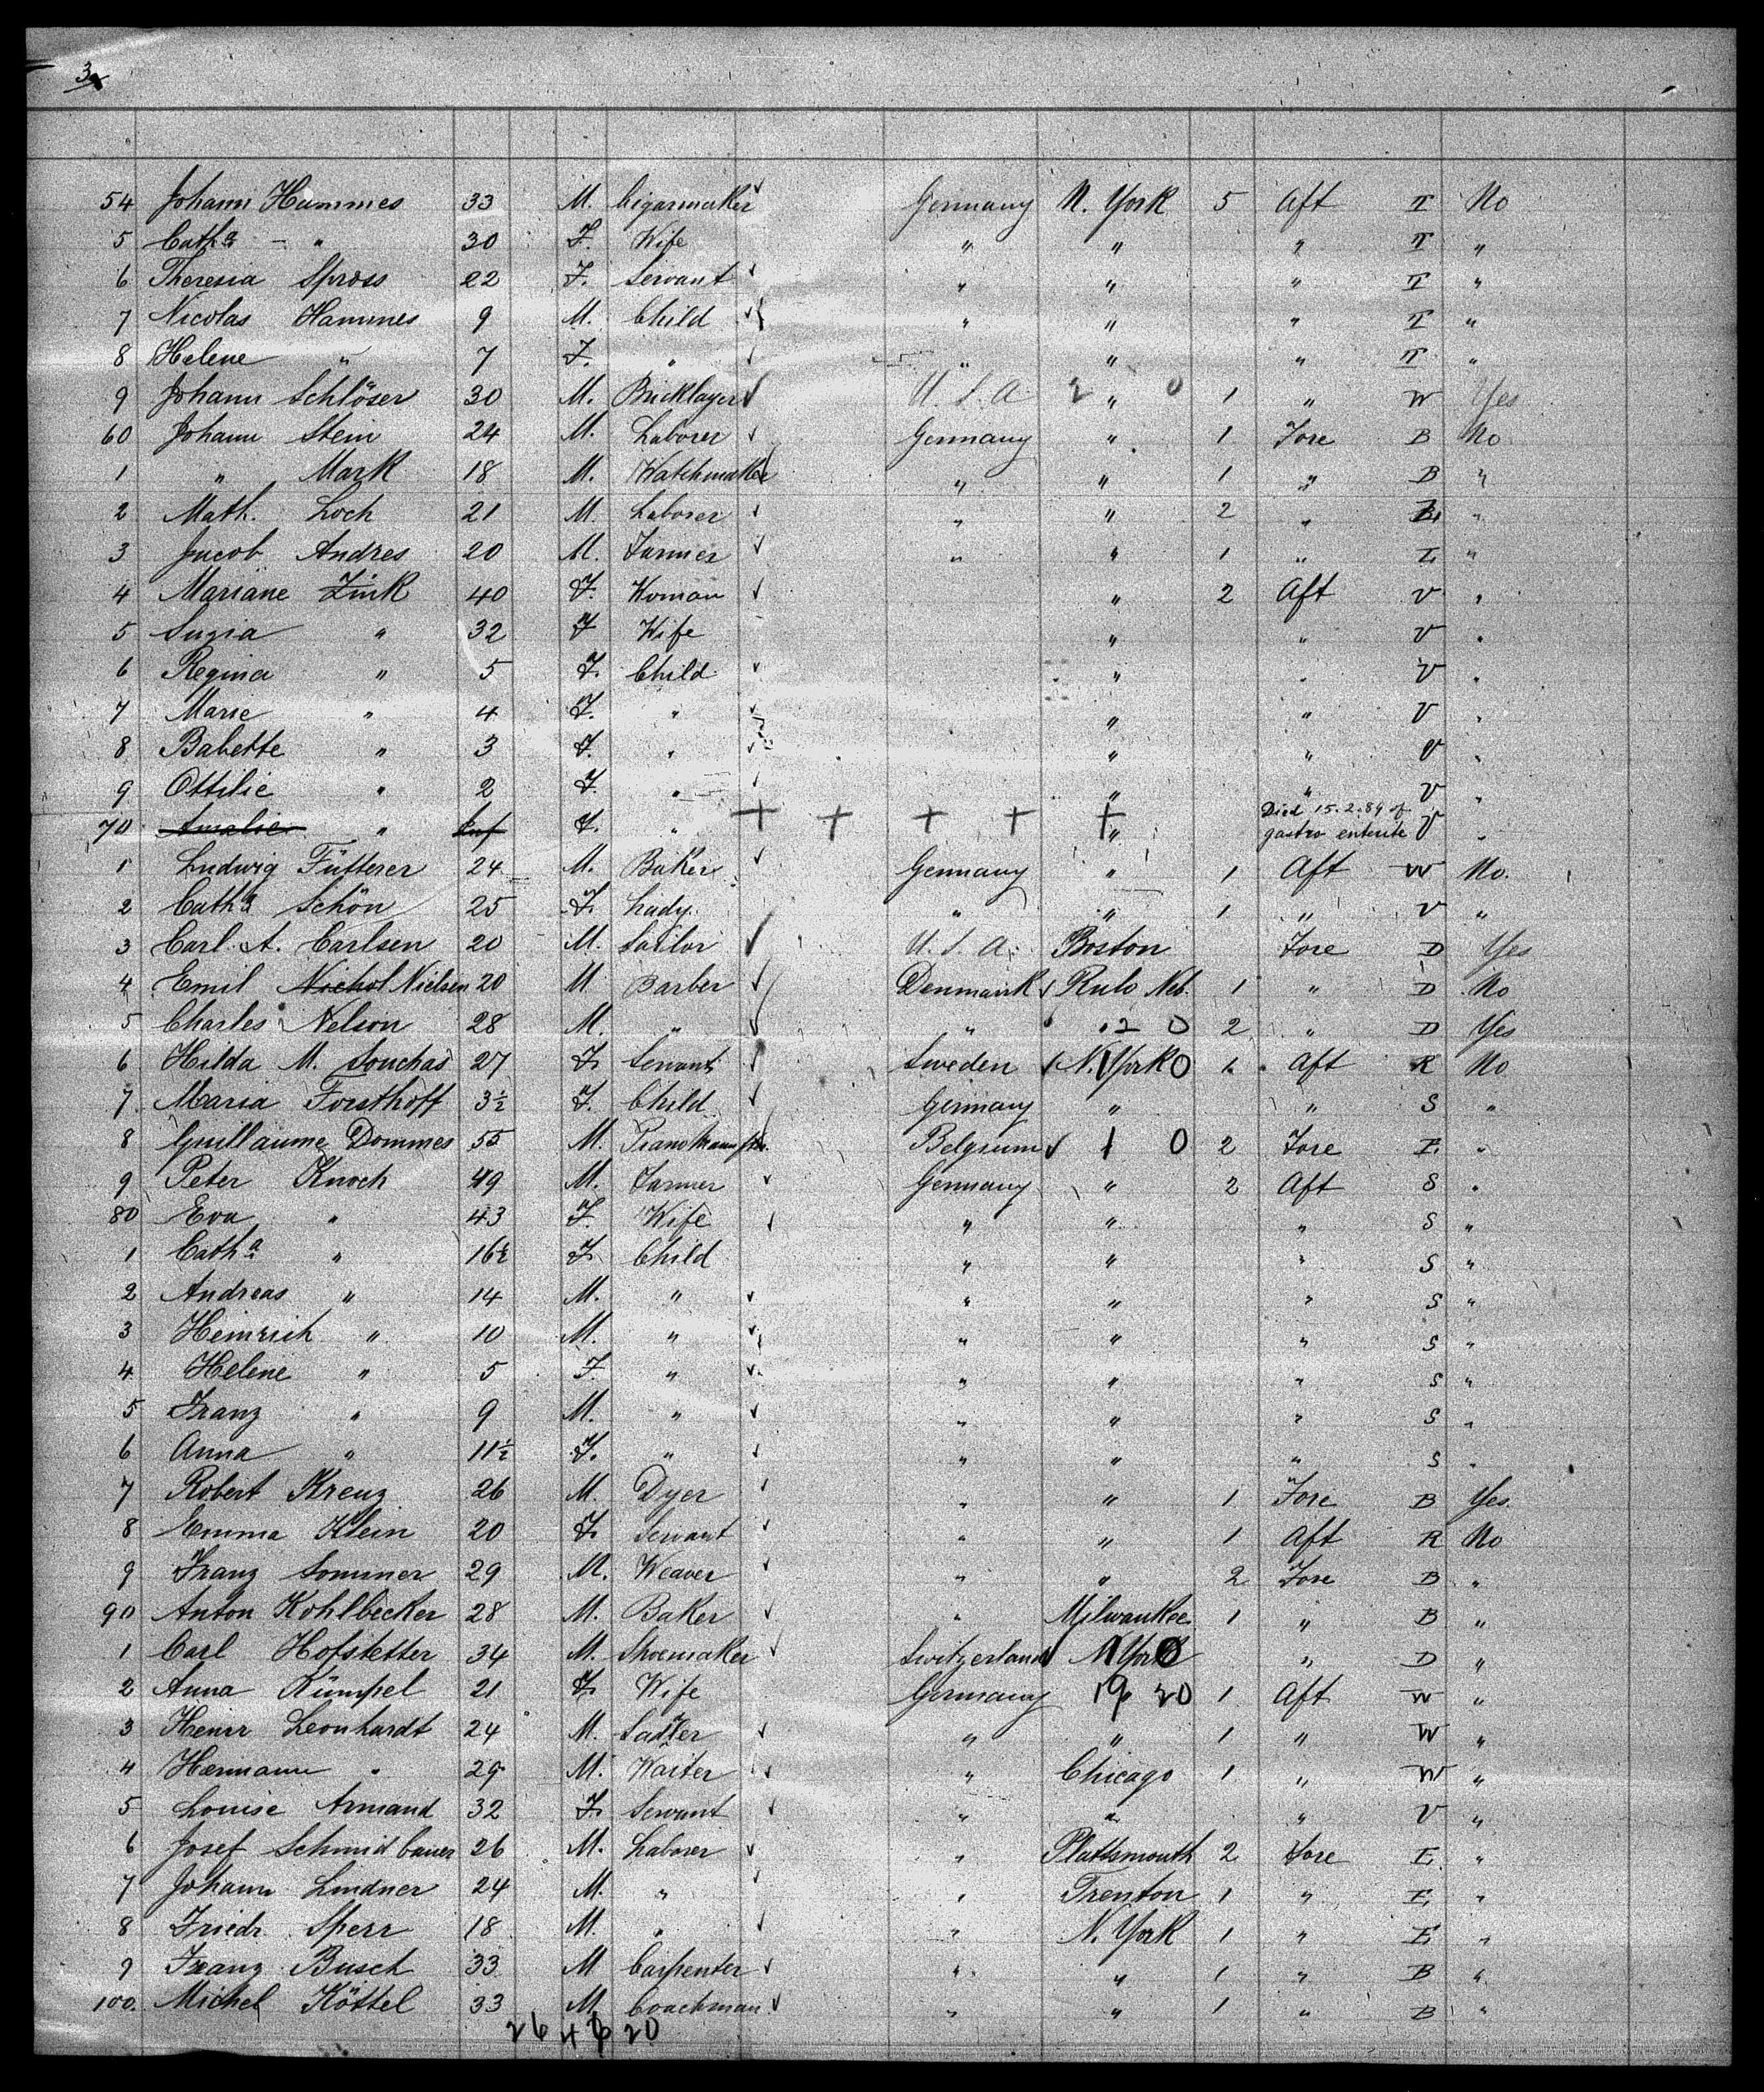 3
54 Johann Hammes 33 M. Cigarmaker Germany N. York 5 Aft T No
5 Cath.a - " 30 F. Wife " " " T "
6 Theresia Spross 22 F. Servant " " " T "
7 Nicolas Hammes 9 M. Child " " " T "
8 Helene " 7 F. " " " " T "
9 Johann Schlöser 30 M. Bricklayer U.S.A. 2 " 0 1 " W Yes
60 Johann Stein 24 M. Laborer Germany " 1 Fore B No
1 " Mark 18 M. Watchmaker " " 1 " B "
2 Math. Loch 21 M. Laborer " " 2 " B "
3 Jacob Andres 20 M. Farmer " " 1 " E "
4 Mariane Zink 40 F. Woman " 2 Aft V "
5 Suzia " 32 F Wife " " V "
6 Regina " 5 F. Child " " V "
7 Marie " 4 F. " " " V "
8 Babette " 3 F. " " " V "
9 Ottilie " 2 F. " " " V "
70 Amalie " Inf F. " + + + + + " Died 15.2.89 of gastro enterite V "
1 Ludwig Fütterer 24 M. Baker Germany " 1 Aft W No.
2 Cath.a Schön 25 F. Lady " " 1 " V "
3 Carl A. Carlsen 20 M. Sailor U.S.A. Boston Fore D Yes
4 Emil Nichol Nielsen 20 M. Barber Denmark Rulo Neb. 1 " D No
5 Charles Nelson 28 M. " " " 2 0 2 " D Yes
6 Hilda M. Souchas 27 F. Servant Sweden N. York 0 1 Aft R No
7 Maria Forsthoff 3½ F. Child Germany " " S "
8 Guillaume Dommes 55 M. Belgium 1 0 2 Fore E "
9 Peter Knoch 49 M. Farmer Germany " 2 Aft S "
80 Eva " 43 F. Wife " " " S "
1 Cath.a " 16½ F. Child " " " S "
2 Andreas " 14 M. " " " " S "
3 Heinrich " 10 M. " " " " S "
4 Helene " 5 F. " " " " S "
5 Franz " 9 M. " " " " S "
6 Anna " 11½ F. " " " " S "
7 Robert Kreuz 26 M. Dyer " " 1 Fore B Yes.
8 Emma Klein 20 F. Servant " " 1 Aft R No
9 Franz Sommer 29 M. Weaver " " 2 Fore B "
90 Anton Kohlbecker 28 M. Baker " Milwaukee 1 " B "
1 Carl Hofstetter 34 M. Shoemaker Switzerland N York " D "
2 Anna Kümpel 21 F. Wife Germany 19 20 1 Aft W "
3 Heinr Leonhardt 24 M. Sadler " " 1 " W "
4 Hermann " 29 M. Waiter " Chicago 1 " W "
5 Louise Armand 32 F. Servant " " " V "
6 Josef Schmidbauer 26 M. Laborer " Plattsmouth 2 Fore E "
7 Johann Lindner 24 M. " " Trenton 1 " E "
8 Friedr. Sperr 18 M. " " N. York 1 " E "
9 Franz Busch 33 M Carpenter " " 1 " B "
100 Michel Köttel 33 M Coachman " " 1 " B "
26 4 6 20